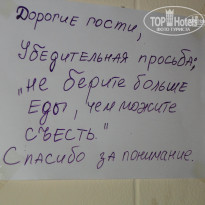 Дорогие гости,
Убедительная просьба:
„не берите больше
еды, чем можите
съесть."
Спасибо за понимание.
TopHotels
ФОТО ТУРИСТА